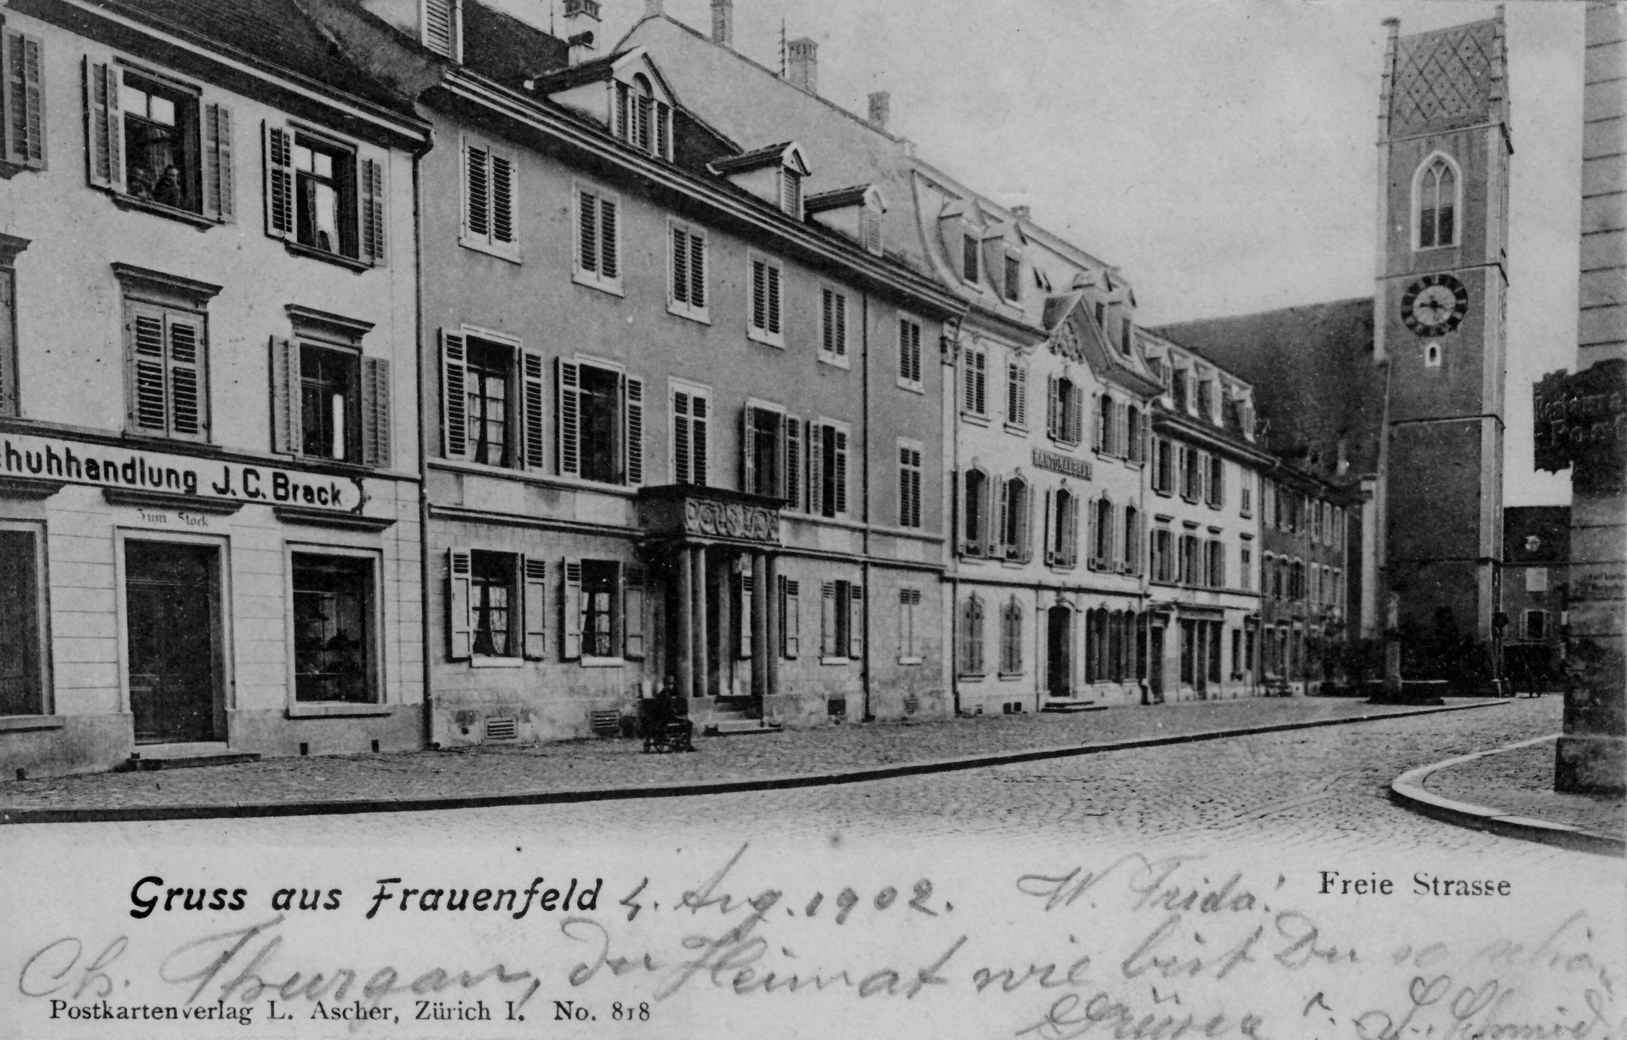 chuhhandlung J.C. Brack
Zum Stock
KANTONALBANK
Gruss aus Frauenfeld 4. Aug. 1902. W. Frida! Freie Strasse
Ch. Thurgau, du Heimat wie bist Du so schön,
Postkartenverlag L. Ascher, Zürich I. No. 818
Grüsse J. Schmid.